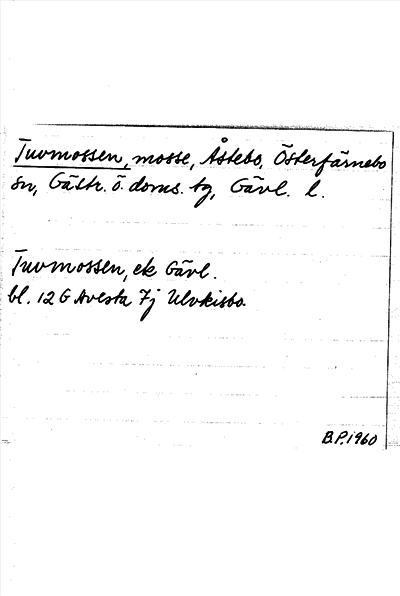 Tuvmossen, mosse, Åstebo, Österfärnebo
sn, Gästr. ö. doms. tg, Gävl. l.
Tuvmossen, ek Gävl.
bl. 12 G Avesta 7j Ulvkisbo
B.P. 1960